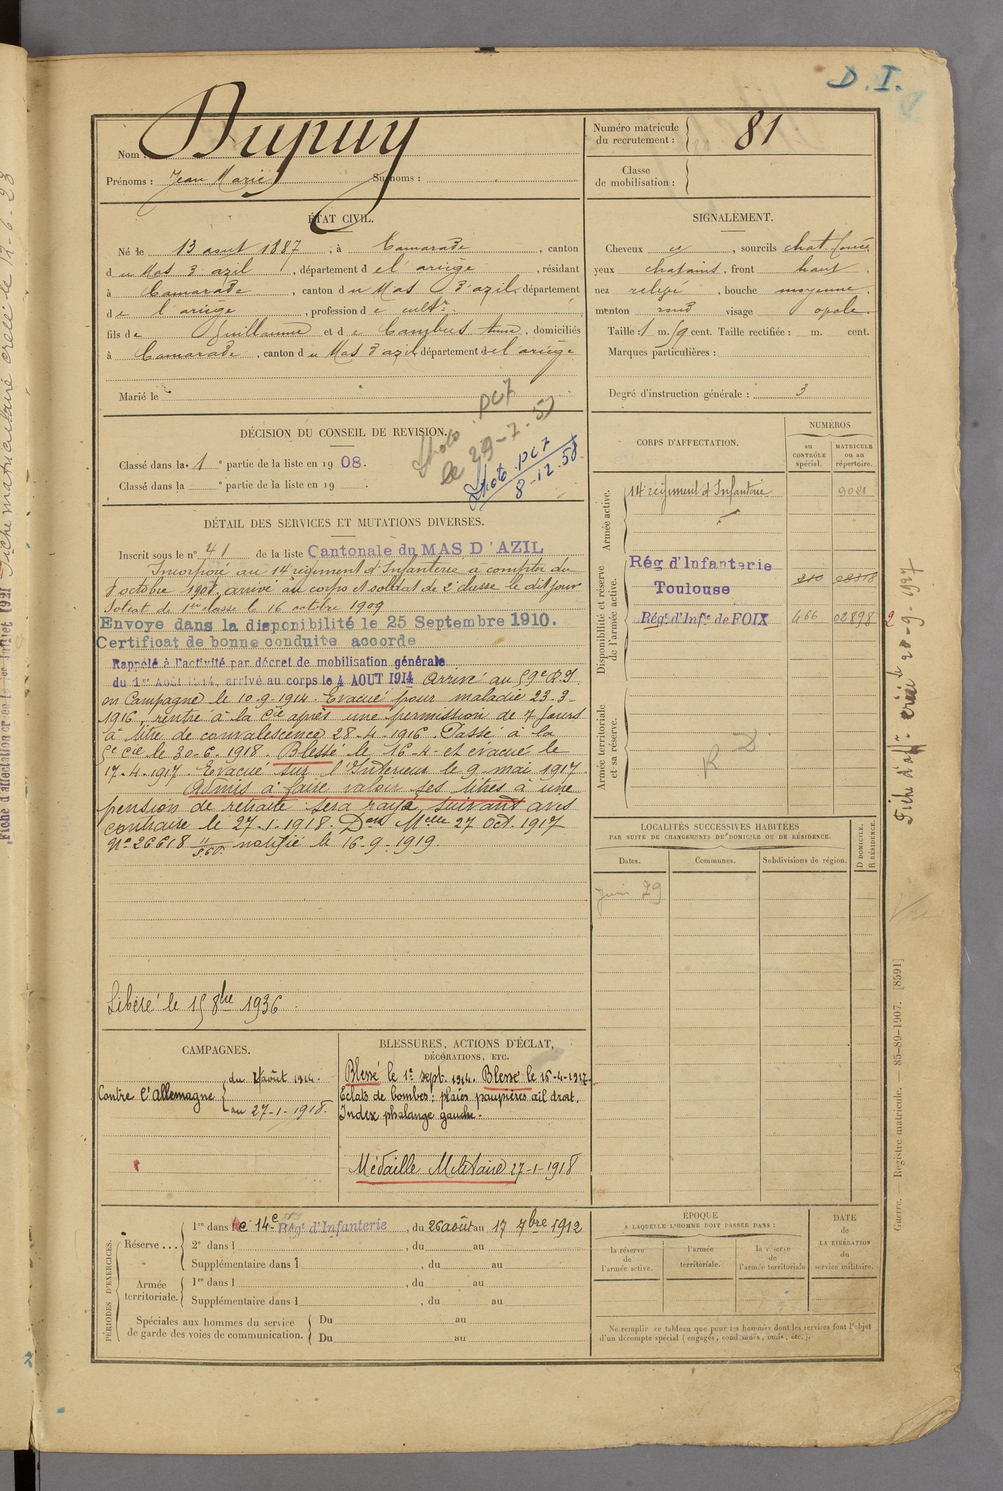 D. I.
Nom : Dupuy
Prénoms : Jean Marie Surnoms :
Numéro matricule du recrutement : 81
Classe de mobilisation :
ÉTAT CIVIL.
Né le 13 aout 1887, à Camarade, canton
du Mas d'azil, département de l'ariège, résidant
à Camarade, canton du Mas d'azil département
de l'ariège, profession de cultr
fils de Guillaume et de Cambus, domiciliés
à Camarade, canton du Mas d'azil département de l'ariège
Marié le
SIGNALEMENT.
Cheveux et, sourcils chat. foncé
yeux chatains, front haut
nez relevé, bouche moyenne,
menton rond visage ovale.
Taille : 1 m. cent. Taille rectifiée : m. cent.
Marques particulières :
Degré d'instruction générale : 3
DÉCISION DU CONSEIL DE REVISION.
Classé dans la 1e partie de la liste en 1908.
Classé dans la e partie de la liste en 19
Photo PC7
le 29-7-57
Photo PC7
8-12-58
DÉTAIL DES SERVICES ET MUTATIONS DIVERSES.
Inscrit sous le n° 41 de la liste Cantonale du MAS D'AZIL
Incorporé au 14 régiment d'Infanterie à compter du
8 octobre 1908, arrivé au corps et soldat de 2e classe le dit jour
Soldat de 1re classe le 16 octobre 1909
Envoye dans la disponibilité le 25 Septembre 1910.
Certificat de bonne conduite accorde
Rappelé à l'activité par décret de mobilisation générale
du 1er Août 1914, arrivé au corps le 4 AOUT 1914 Arrivé au 59e R.I
en Campagne le 10-9-1914. Evacué pour maladie 23-3-
1916, rentré à la Cie après une permission de 7 jours
à titre de convalescence 28-4-1916. Passé à la
Cie le 30-6-1918. Blessé le 16-4- et évacué le
17-4-1917. Evacué sur l'Intérieur le 9 mai 1917
Admis à faire valoir ses titres à une
pension de retraite sera rayé suivant avis
contraire le 27-1-1918. Don Melle 27 oct. 1917
No 26618 notifié le 16-9-1919.
Libéré le 15 8bre 1936
CORPS D'AFFECTATION.
NUMÉROS
au CONTRÔLE spécial.
MATRICULE ou au répertoire.
Armée active.
14 régiment d'Infanterie 9081
Disponibilité et réserve de l'armée active.
Rég d'Infanterie
Toulouse
Régt d'Infie de FOIX 466 02898
Armée territoriale et sa réserve.
LOCALITÉS SUCCESSIVES HABITÉES
PAR SUITE DE CHANGEMENTS DE DOMICILE OU DE RÉSIDENCE.
D DOMICILE. R RÉSIDENCE.
Dates. Communes. Subdivisions de région.
Juin 29
CAMPAGNES.
Contre l'allemagne
du 4 août 1914.
au 27-1-1918.
BLESSURES, ACTIONS D'ÉCLAT,
DÉCORATIONS, ETC.
Blessé le 12 sept. 1914. Blessé le 16-4-1917
Eclats de bombes : plaies paupières œil droit.
Index phalange gauche.
Médaille Militaire 27-1-1918
PÉRIODES D'EXERCICES.
Réserve...
1re dans le 14e Régt d'Infanterie, du 26 août au 17 7bre 1912
2e dans l , du au
Supplémentaire dans l , du au
Armée territoriale.
1re dans l , du au
Supplémentaire dans l , du au
Spéciales aux hommes du service de garde des voies de communication.
Du au
Du au
ÉPOQUE
À LAQUELLE L'HOMME DOIT PASSER DANS :
la réserve de l'armée active.
l'armée territoriale.
la réserve de l'armée territoriale
DATE de LA LIBÉRATION du service militaire.
Ne remplir ce tableau que pour les hommes dont les services font l'objet
d'un décompte spécial (engagés, condamnés, omis, etc.).
Guerre. — Registre matricule. — 85-89-1907. [8591]